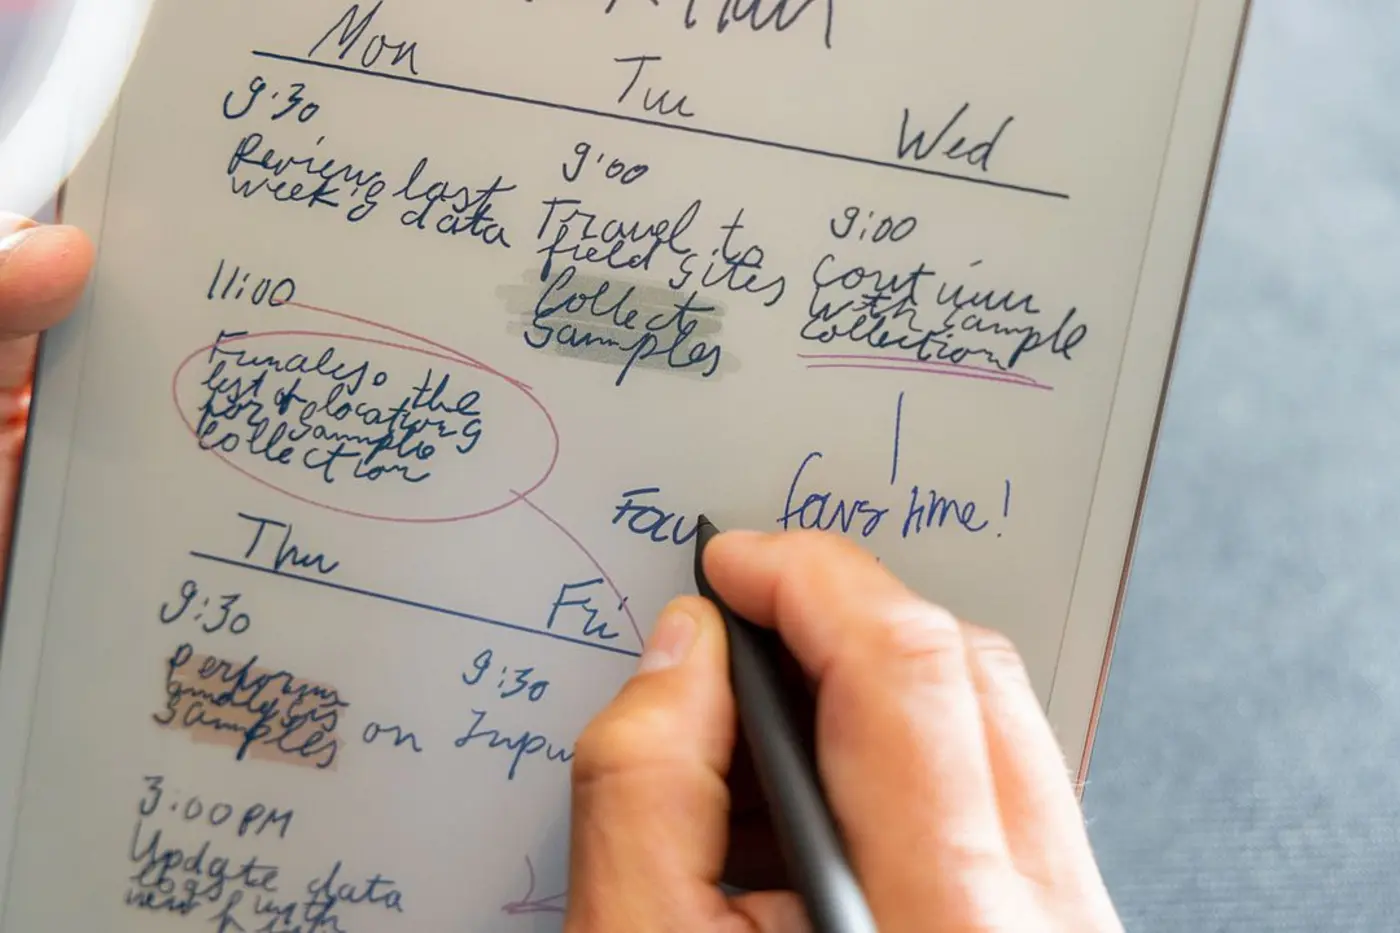 Mon
Tue
Wed
9:30
Review last
week's data
11:00
the
list of locations
for sample
collection
9:00
Travel to
field sites
Collect
samples
9:00
Continue
with sample
collection
time!
Thu
Fri
9:30
Perform
analysis on
samples
3:00 PM
Update data
logs with
new
9:30